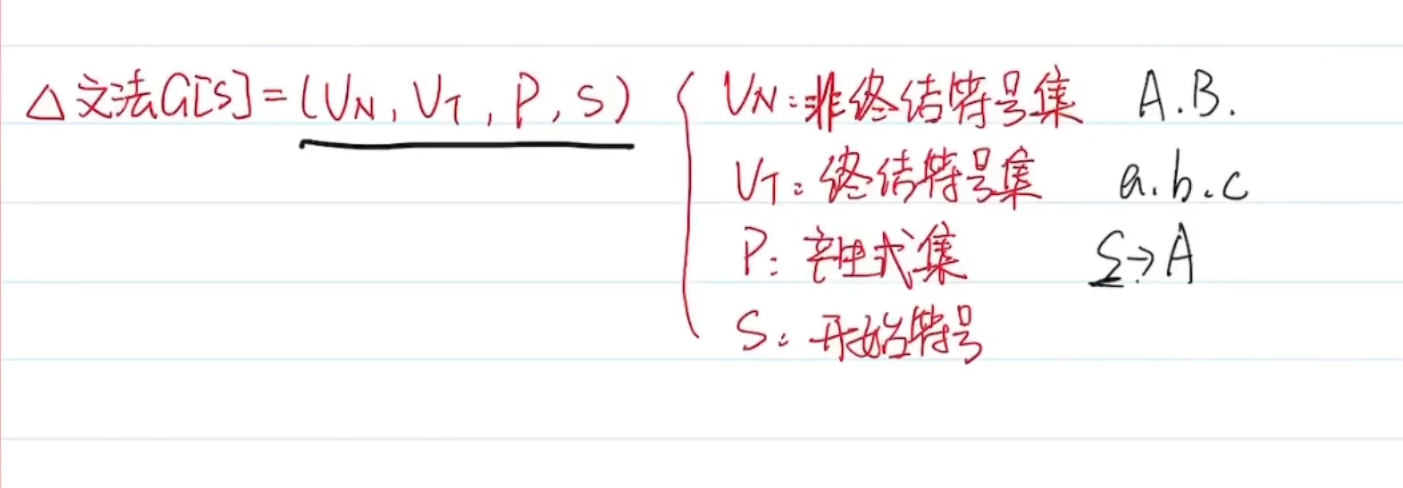 △文法G[S]=(VN, VT, P, S) { VN:非终结符号集 A.B.
VT:终结符号集 a.b.c
P:产生式集 S→A
S:开始符号